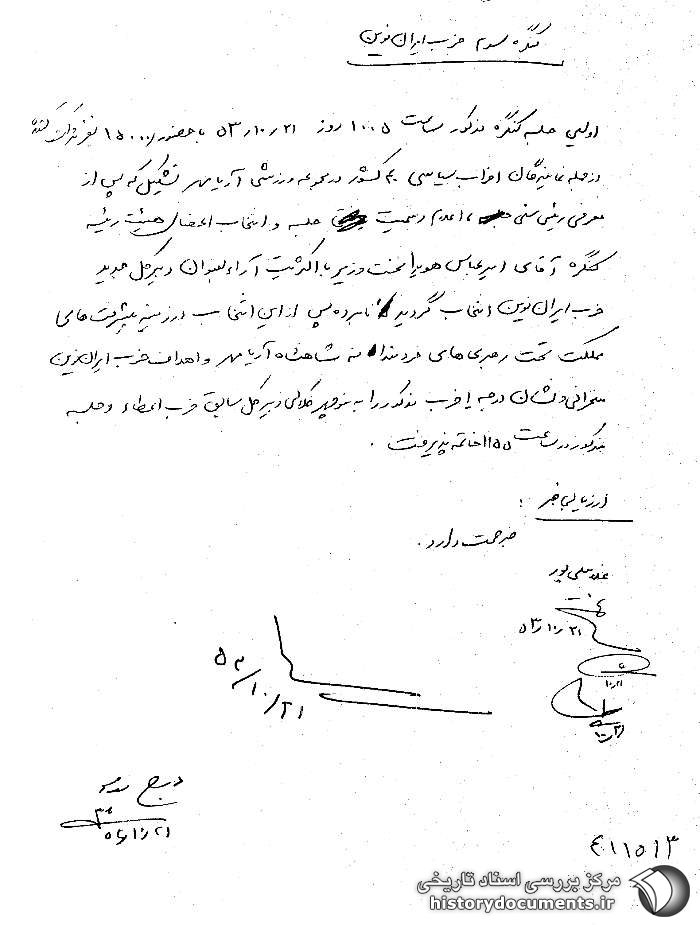 کنگره سوم حزب ایران نوین
اولین جلسه کنگره مذکور ساعت 1005 روز 53/10/21 با حضور 15000 نفر شرکت کننده
از جمله نمایندگان احزاب سیاسی 20 کشور در مجموعه ورزشی آریامهر تشکیل که پس از
معرفی رئیس سنی و اعلام رسمیت جلسه و انتخاب اعضای هیئت رئیسه
کنگره آقای امیرعباس هویدا نخست وزیر با اکثریت آراء بعنوان دبیرکل جدید
حزب ایران نوین انتخاب گردید نامبرده پس از این انتخاب در زمینه پیشرفت های
مملکت تحت رهبری های خردمندانه شاهنشاه آریامهر و اهداف حزب ایران نوین
سخنرانی و نشان درجه یک حزب مذکور را به منوچهر کلالی دبیرکل سابق حزب اعطاء و جلسه
مذکور در ساعت 1155 خاتمه پذیرفت .
ارزیابی خبر :
خبر صحت دارد .
غلامعلی پور
نهضت
53/10/21
10/21
53/10/21
درج شد
53/10/21
411513
مرکز بررسی اسناد تاریخی
historydocuments.ir